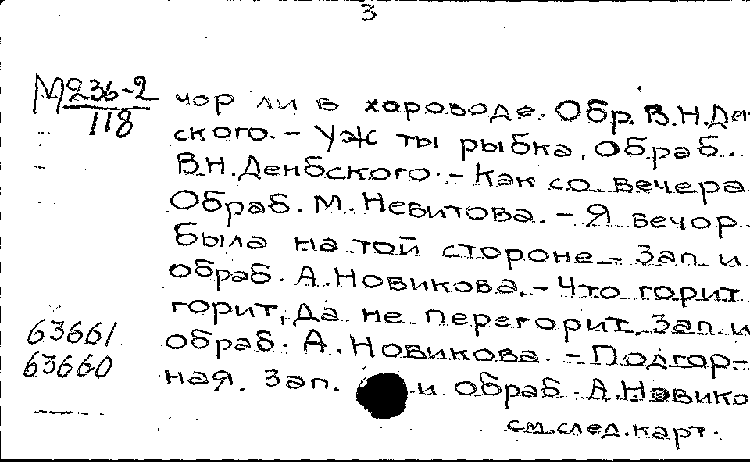 3
М236-2
118
чор ли в хороводе. Обр. В.Н.Ден
ского. - Уж ты рыбка. Обраб.
В.Н.Денбского. - Как со вечера
Обраб. М. Невитова. - Я вечор
была на той стороне - Зап. и
обраб. А. Новикова. - Что горит
горит, да не перегорит. Зап. и
63661 обраб. А. Новикова. - Подгор-
63660 ная. Зап. и обраб. А. Новико
см. след. карт.